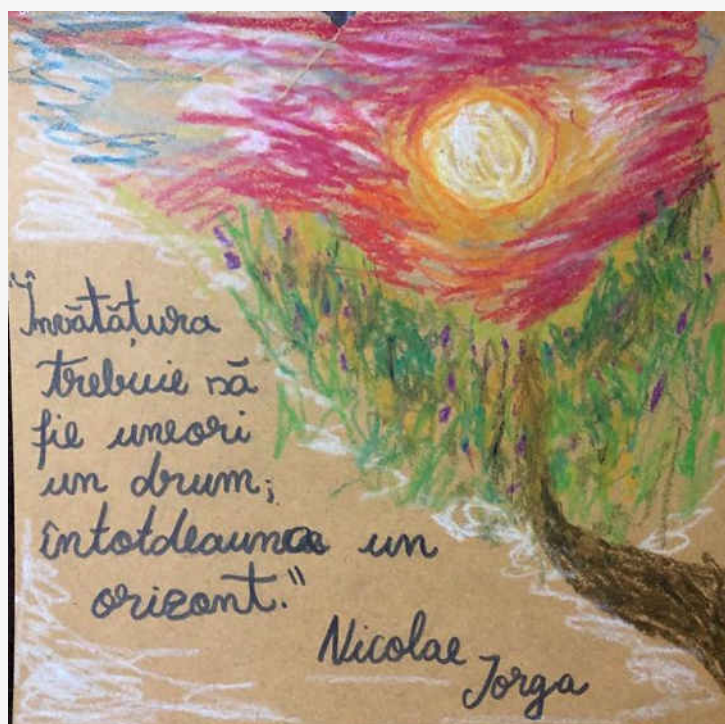 "Învățătura
trebuie să
fie uneori
un drum;
întotdeauna un
orizont."
Nicolae
Iorga